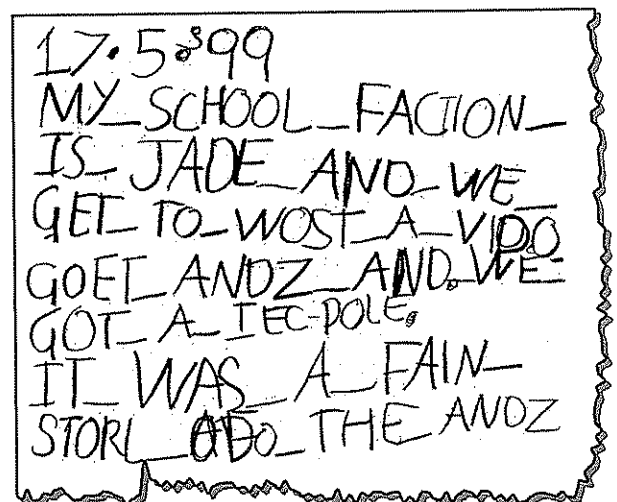 17.5.99
MY_SCHOOL_FACTION_
IS_JADE_AND_WE_
GET_TO_WOST_A_VIDO
GOET_ANDZ_AND.WE_
GOT_A_TEC-POLE.
IT_WAS_A_FAIN_
STORI_ADO_THE ANDZ